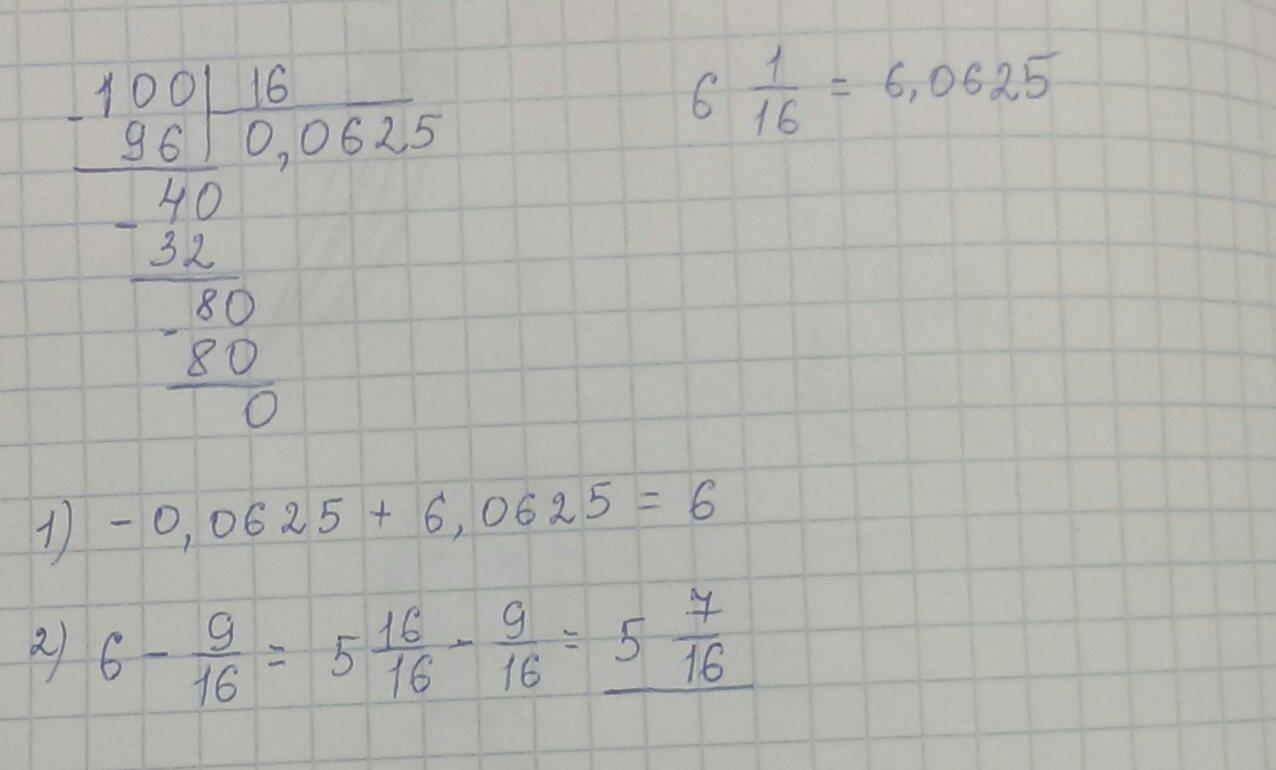 -100|16
96|0,0625
-40
32
-80
80
0
6 1/16 = 6,0625
1) -0,0625 + 6,0625 = 6
2) 6 - 9/16 = 5 16/16 - 9/16 = 5 7/16